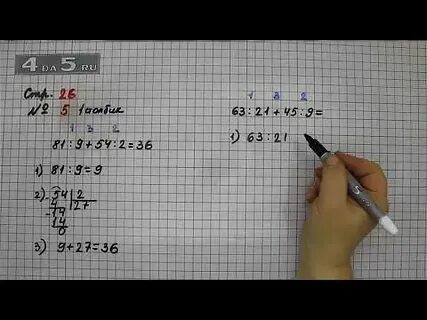 4DA5.RU
Стр. 26
№ 5 1 столбик
1 3 2
81:9+54:2=36
1) 81:9=9
2) 54 | 2
4 | 27
-14
14
0
3) 9+27=36
1 3 2
63:21+45:9=
1) 63:21